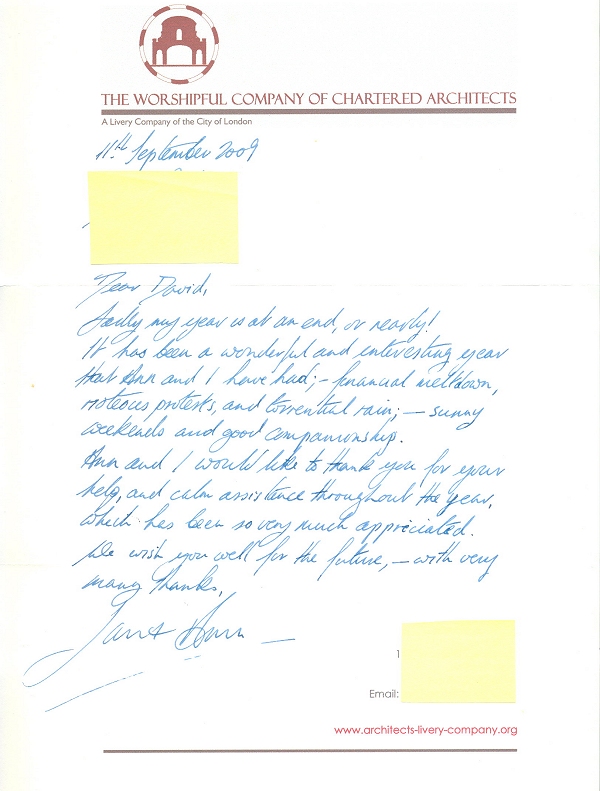 THE WORSHIPFUL COMPANY OF CHARTERED ARCHITECTS
A Livery Company of the City of London
11th September 2009
Dear David,
Sadly my year is at an end, or nearly!
It has been a wonderful and interesting year
that Ann and I have had; - financial meltdown,
rioteous protests, and torrential rain; - sunny
weekends and good companionship.
Ann and I would like to thank you for your
help, and calm assistance throughout the year,
which has been so very much appreciated.
We wish you well for the future, - with very
many thanks,
Ann
1
Email:
www.architects-livery-company.org